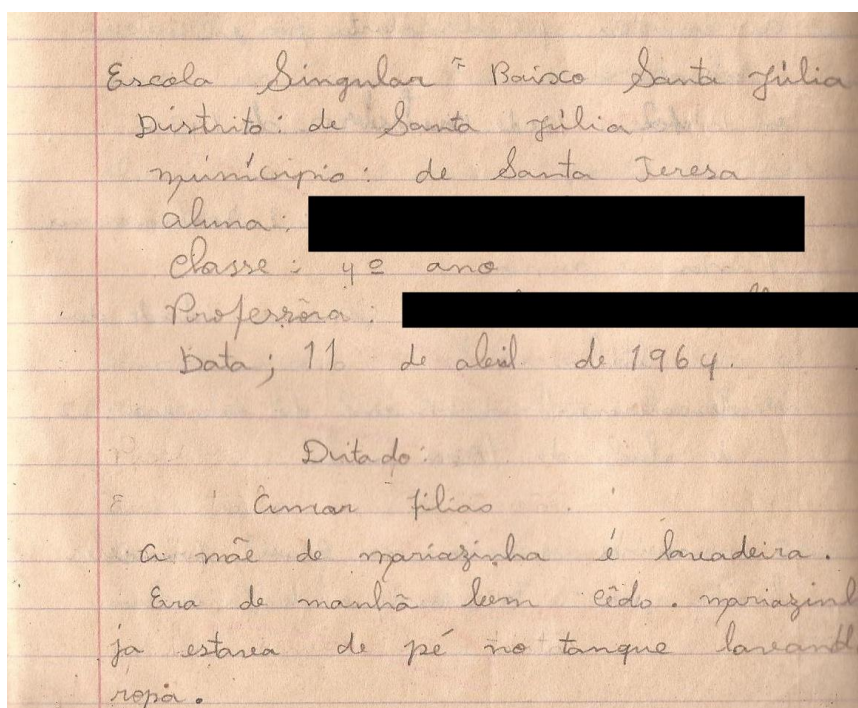 Escola Singular " Baixo Santa Júlia
Distrito: de Santa Júlia
município: de Santa Teresa
aluna:
Classe: 4º ano
Professôra:
Data; 11 de abril de 1964.
Ditado:
Amar filiao
A mãe de mariazinha é lavadeira.
Era de manhã bem cêdo. mariazinh
ja estava de pé no tanque lavand
ropa.